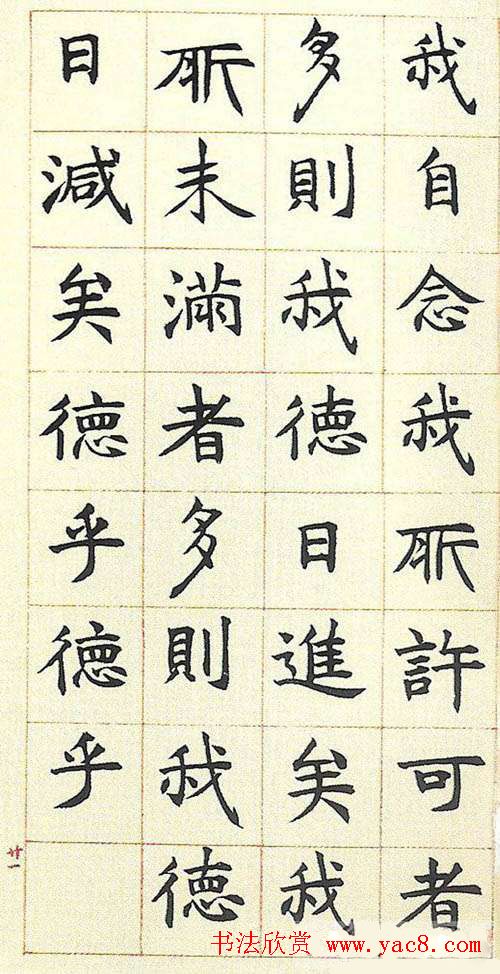 我自念我所許可者
多則我德日進矣我
所未滿者多則我德
日減矣德乎德乎
廿一
书法欣赏 www.yac8.com